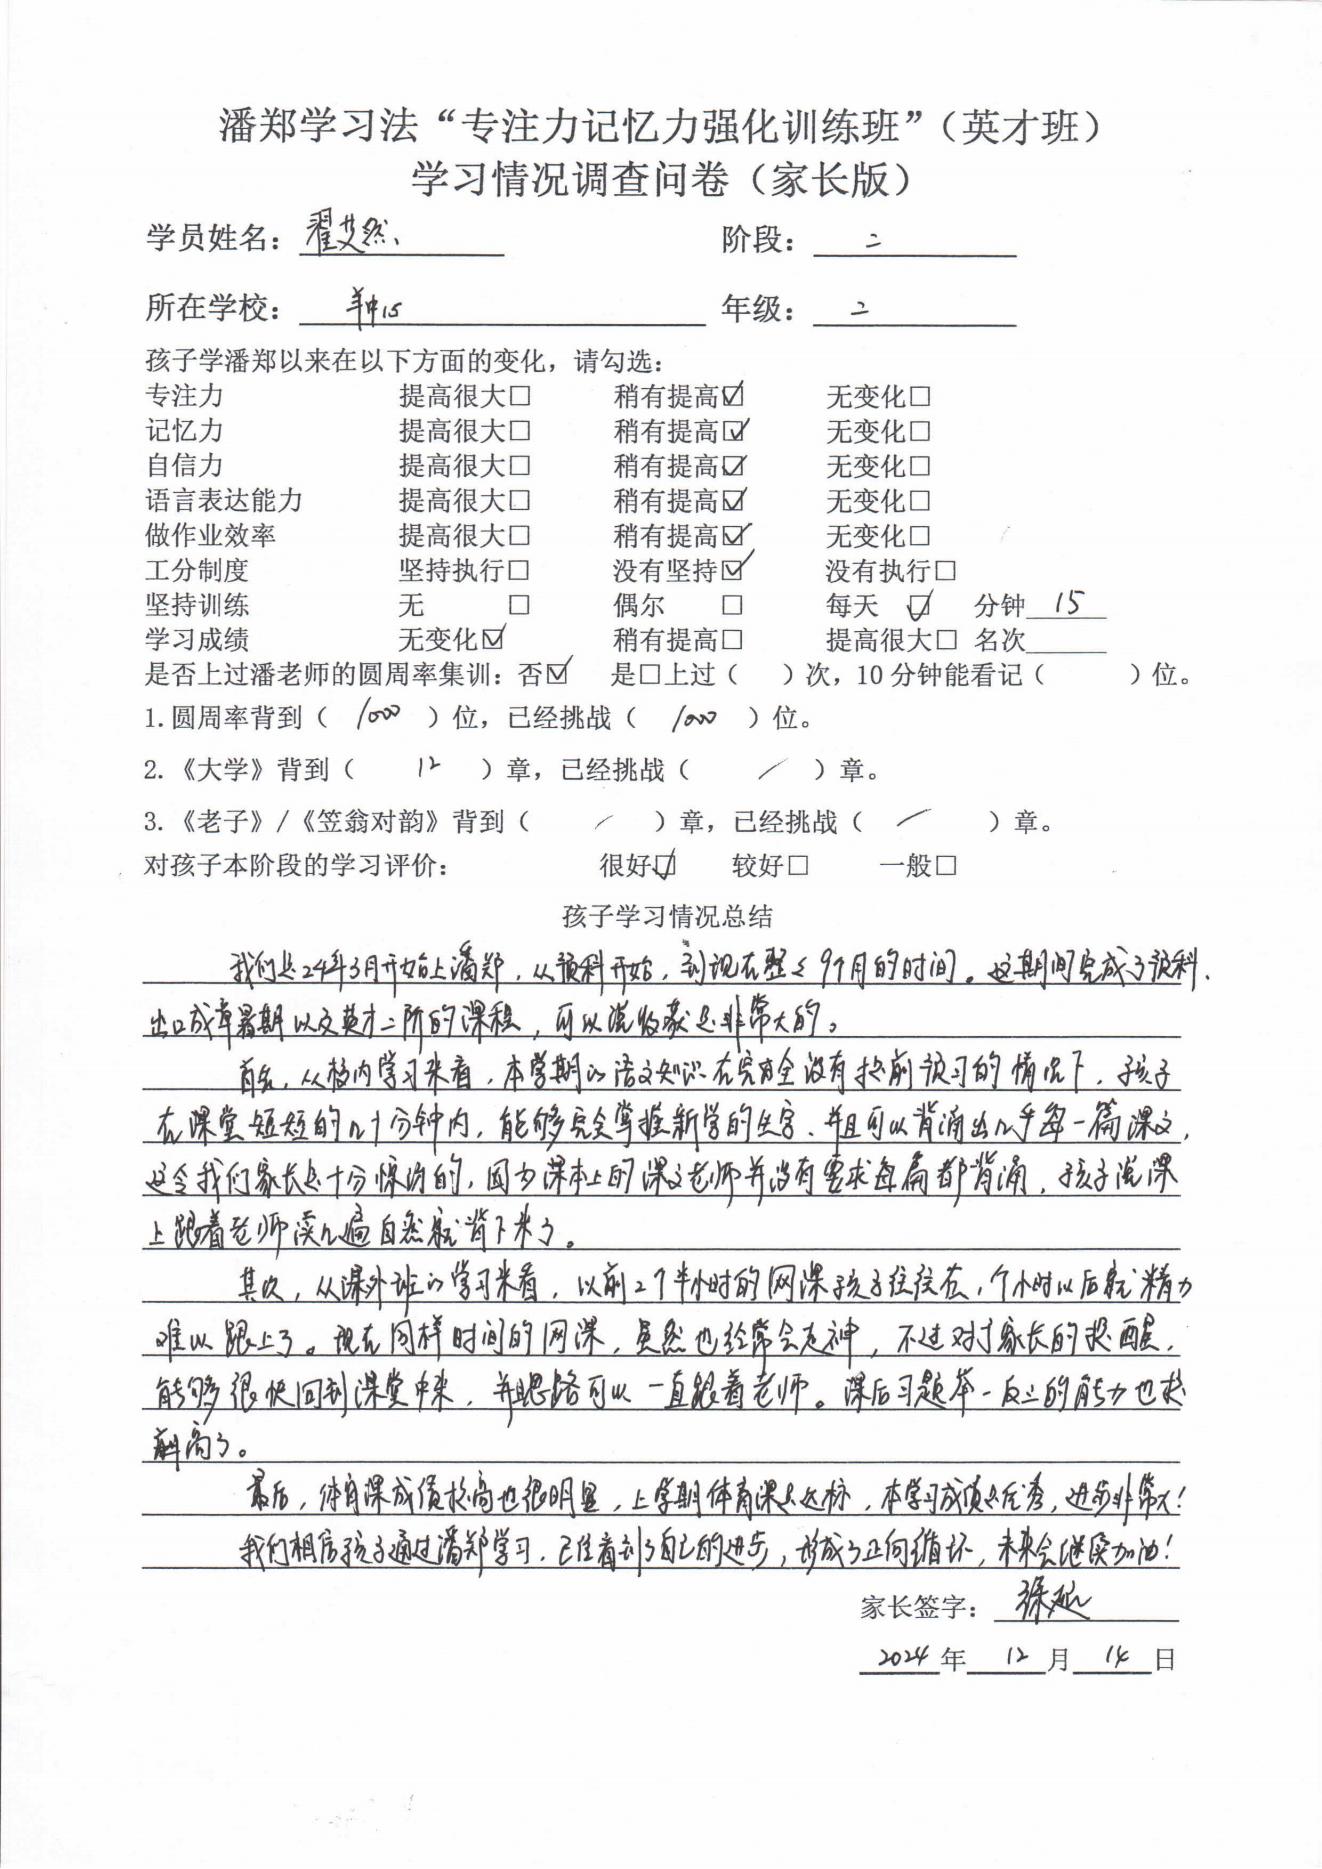 潘郑学习法“专注力记忆力强化训练班”（英才班）
学习情况调查问卷（家长版）
学员姓名：翟艾然 阶段：二
所在学校： 15 年级：二
孩子学潘郑以来在以下方面的变化，请勾选：
专注力 提高很大□ 稍有提高☑ 无变化□
记忆力 提高很大□ 稍有提高☑ 无变化□
自信力 提高很大□ 稍有提高☑ 无变化□
语言表达能力 提高很大□ 稍有提高☑ 无变化□
做作业效率 提高很大□ 稍有提高☑ 无变化□
工分制度 坚持执行□ 没有坚持☑ 没有执行□
坚持训练 无 □ 偶尔 □ 每天 ☑ 分钟 15
学习成绩 无变化☑ 稍有提高□ 提高很大□ 名次
是否上过潘老师的圆周率集训：否☑ 是□上过（ ）次，10分钟能看记（ ）位。
1.圆周率背到（ 1000 ）位，已经挑战（ 1000 ）位。
2.《大学》背到（ 12 ）章，已经挑战（ / ）章。
3.《老子》/《笠翁对韵》背到（ / ）章，已经挑战（ / ）章。
对孩子本阶段的学习评价： 很好☑ 较好□ 一般□
孩子学习情况总结
我们是24年3月开始上潘郑，从预科开始，到现在整整9个月的时间。这期间完成了预科、
出口成章暑期以及英才二阶的课程，可以说收获是非常大的。
首先，从校内学习来看，本学期的语文知识在完全没有提前预习的情况下，孩子
在课堂短短的几十分钟内，能够完全掌握新学的生字、并且可以背诵出几乎每一篇课文，
这令我们家长是十分惊讶的，因为课本上的课文老师并没有要求每篇都背诵，孩子说课
上跟着老师读几遍自然就背下来了。
其次，从课外班的学习来看，以前2个半小时的网课孩子往往在一个小时以后就精力
难以跟上了。现在同样时间的网课，虽然也经常会走神，不过对于家长的提醒，
能够很快回到课堂中来，并且思路可以一直跟着老师。课后习题举一反三的能力也提
高了。
最后，体育课成绩提高也很明显，上学期体育课是达标，本学习成绩是优秀，进步非常大！
我们相信孩子通过潘郑学习，已经看到了自己的进步，形成了正向循环，未来会继续加油！
家长签字：徐
2024年12月14日